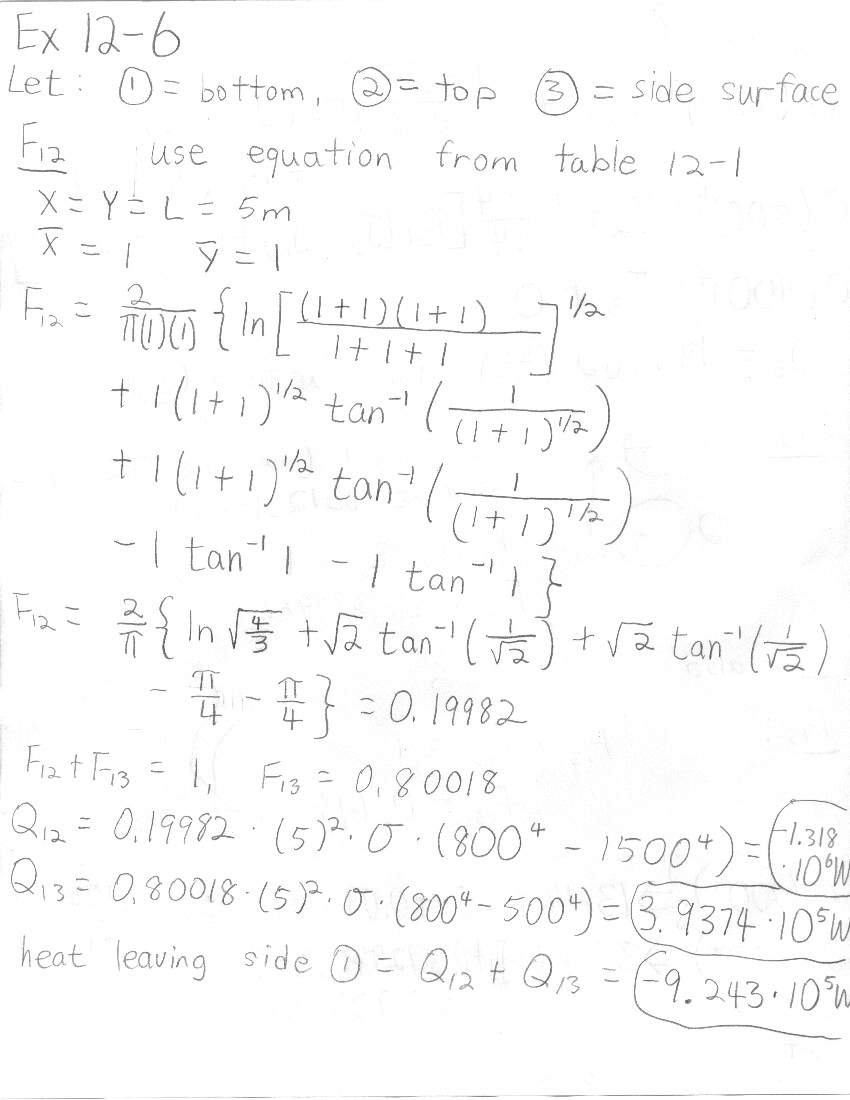 Ex 12-6
Let: ① = bottom, ② = top ③ = side surface
F₁₂ use equation from table 12-1
X = Y = L = 5m
X̅ = 1 Y̅ = 1
F₁₂ = 2/(π(1)(1)) { ln [ (1+1)(1+1) / (1+1+1) ]^1/2
+ 1(1+1)^1/2 tan⁻¹ ( 1/(1+1)^1/2 )
+ 1(1+1)^1/2 tan⁻¹ ( 1/(1+1)^1/2 )
- 1 tan⁻¹ 1 - 1 tan⁻¹ 1 }
F₁₂ = 2/π { ln √(4/3) + √2 tan⁻¹ (1/√2) + √2 tan⁻¹ (1/√2)
- π/4 - π/4 } = 0.19982
F₁₂ + F₁₃ = 1, F₁₃ = 0.80018
Q₁₂ = 0.19982 · (5)² · σ · (800⁴ - 1500⁴) = -1.318 · 10⁶ W
Q₁₃ = 0.80018 · (5)² · σ · (800⁴ - 500⁴) = 3.9374 · 10⁵ W
heat leaving side ① = Q₁₂ + Q₁₃ = -9.243 · 10⁵ W